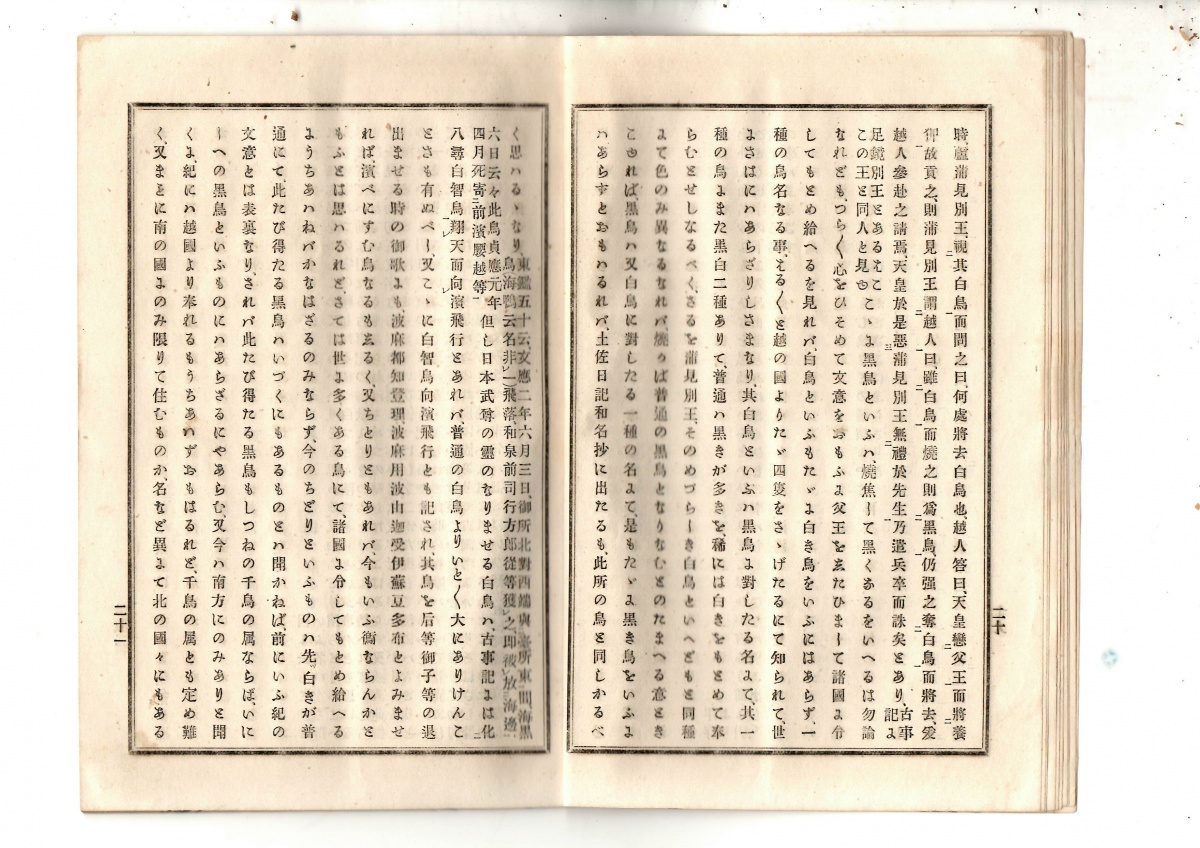 時、蘆蒲見別王、視其白鳥而問之曰、何處將去白鳥也越人答曰、天皇戀父王而將養
狎故貢之、則蒲見別王謂越人曰雖白鳥而燒之則爲黑鳥、仍强之奪白鳥而將去、爰
越人參赴之請焉、天皇於是惡蒲見別王無禮於先生乃遣兵卒而誅矣とあり、古事記よ
足鏡別王とあるはこの王と同人と見ゆこゝよ黑鳥といふハ、燒焦して黑くあるをいへるは勿論
なれども、つら〱心をひそめて文意をおもふよ父王をゑたひまして諸國よ令
してもとめ給へるを見れバ、白鳥といふもたゞよ白き鳥をいふにはあらず、一
種の鳥名なる事、ゑる〱と越の國よりたゞ四隻をさゝげたるにて知られて、世
よさはにハあらざりしさまなり、其白鳥といふハ黑鳥よ對したる名よて、其一
種の鳥よまた黑白二種ありて、普通ハ黑きが多きを、稀には白きをもとめて奉
らむとせしなるべく、さるを蒲見別王、そのめづらしき白鳥といへどもと同種
よて色のみ異なるなれバ、燒かば普通の黑鳥となりなむとのたまへる意とき
こゆれば、黑鳥ハ又白鳥に對したる一種の名よて、是もたゞよ黑き鳥をいふよ
ハあらずとおもハるれバ、土佐日記和名抄に出たるも、此所の鳥と同しかるべ
二十
く思ハるゝなり、東鑑五十云、文應二年六月三日、御所北對西端與臺所東間海黑
鳥海鴨云名非一飛落、和泉前司行方郎從等獲之即被放海邊
六日云々此鳥貞應元年四月死寄前濱腰越等 但し日本武尊の靈のなりませる白鳥ハ、古事記よは化
八尋白智鳥翔天而向濱飛行とあれバ、普通の白鳥よりいと〱大にありけんこ
とさも有ぬべし、又こゝに白智鳥向濱飛行とも記され、其鳥を后等御子等の退
出ませる時の御歌よも波麻都知登理波麻用波由迦受伊蘇豆多布とよみませ
れば、濱べにすむ鳥なるもゑるく、又ちとりともあれバ、今もいふ衞ならんかと
もふとは思ハるれど、さては世よ多くある鳥にて、諸國よ令してもとめ給へる
ようちあハねバかなはざるのみならず、今のちどりといふものハ先ッ白きが普
通にて此たび得たる黑鳥ハいづくにもあるものとハ聞かねば、前にいふ紀の
文意とは表裏なり、されバ此たび得たる黑鳥もしつねの千鳥の属ならば、いに
しへの黑鳥といふものにハあらざるにやあらむ、又今ハ南方にのみありと聞
くよ、紀にハ越國より奉れるもうちあハずおもはるれど、千鳥の属とも定め難
く、又まさに南の國よのみ限りて住むものか、名など異よて北の國々にもある
二十一